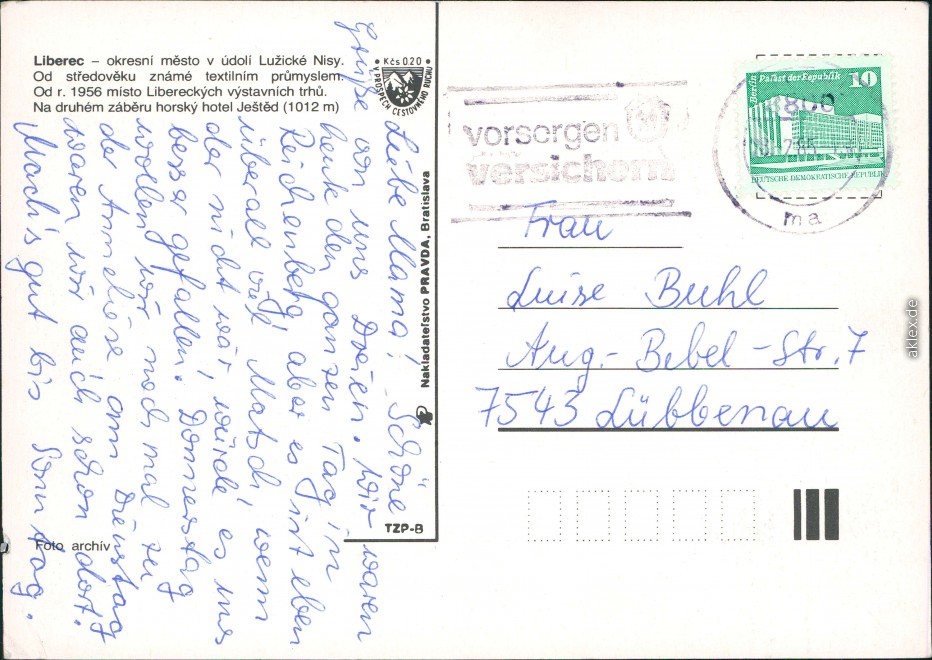 Liberec – okresní město v údolí Lužické Nisy.
Od středověku známé textilním průmyslem.
Od r. 1956 místo Libereckých výstavních trhů.
Na druhém záběru horský hotel Ještěd (1012 m)
Kčs 020
V PROSPĚCH CESTOVNÉHO RUCHU
Liebe Mama! Schöne
Grüße von uns Dreien. Wir waren
heute den ganzen Tag in
Reichenberg, aber es ist eben
überall viel Matsch, wenn
der nicht wär, würde es uns
besser gefallen. Donnerstag
wollen wir noch mal zu
der Anneliese, am Dienstag
waren wir auch schon dort.
Mach's gut bis Sonntag.
Foto archív
Nakladateľstvo PRAVDA, Bratislava
TZP-B
vorsorgen
versichern
Berlin Palast der Republik 10
DEUTSCHE DEMOKRATISCHE REPUBLIK
ma
Frau
Luise Buhl
Aug.-Bebel-Str. 7
7543 Lübbenau
aklex.de